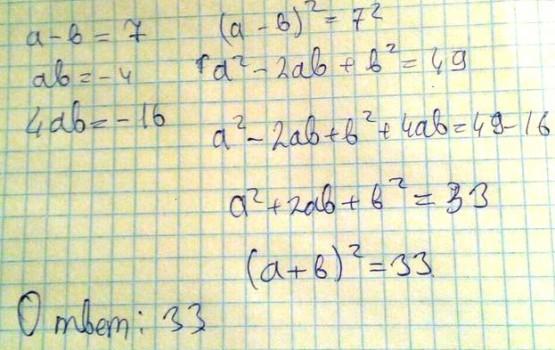 a-в = 7
ab = -4
4ab = -16
(a-в)² = 7²
a² - 2ab + в² = 49
a² - 2ab + в² + 4ab = 49-16
a² + 2ab + в² = 33
(a+в)² = 33
Ответ: 33